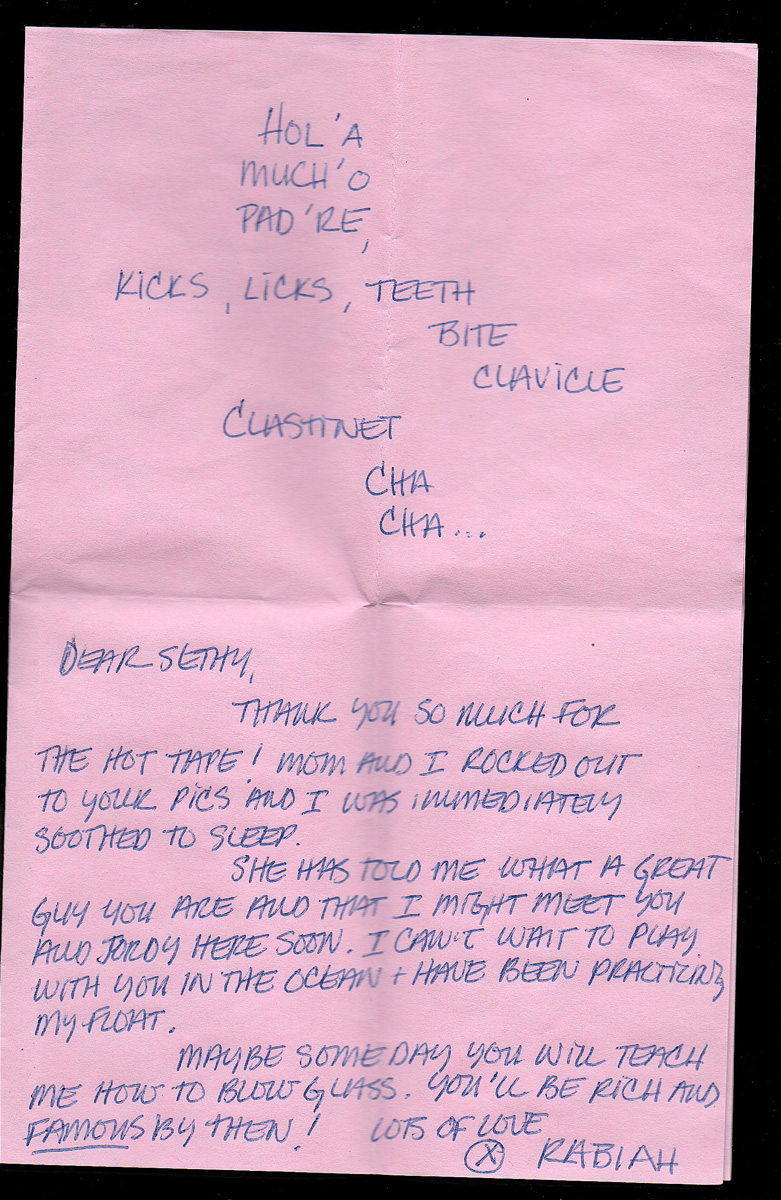 HOL'A
MUCH'O
PAD'RE,
KICKS, LICKS, TEETH
BITE
CLAVICLE
CLASTINET
CHA
CHA...
DEAR SETHY,
THANK YOU SO MUCH FOR
THE HOT TAPE! MOM AND I ROCKED OUT
TO YOUR PICS AND I WAS IMMEDIATELY
SOOTHED TO SLEEP.
SHE HAS TOLD ME WHAT A GREAT
GUY YOU ARE AND THAT I MIGHT MEET YOU
AND JORDY HERE SOON. I CAN'T WAIT TO PLAY
WITH YOU IN THE OCEAN + HAVE BEEN PRACTIZING
MY FLOAT.
MAYBE SOMEDAY YOU WILL TEACH
ME HOW TO BLOW GLASS. YOU'LL BE RICH AND
FAMOUS BY THEN! LOTS OF LOVE
X RABIAH